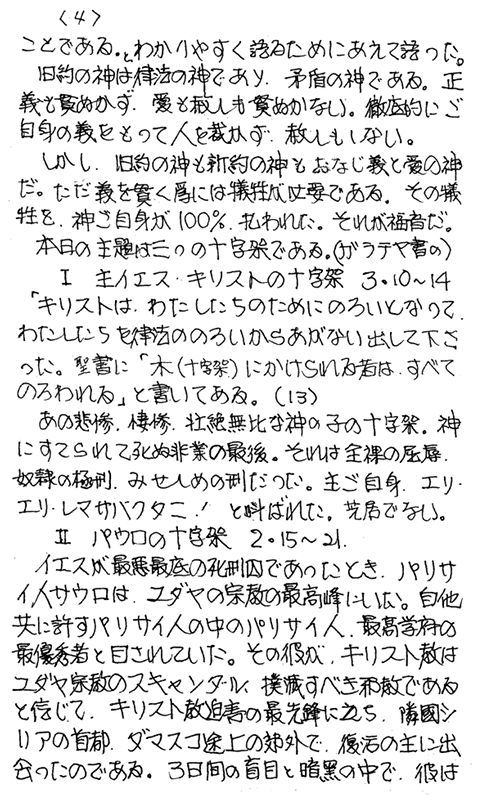 〈4〉
ことである。とわかりやすく語るためにあえて語った。
旧約の神は律法の神であり、矛盾の神である。正
義も貫ぬかず、愛も赦しも貫ぬかない。徹底的にご
自身の義をもって人を裁かず、赦しもしない。
しかし、旧約の神も新約の神もおなじ義と愛の神
だ。ただ義を貫く為には犠牲が必要である。その犠
牲を、神ご自身が100%、払われた。それが福音だ。
本日の主題は三つの十字架である。(ガラテヤ書の)
Ⅰ 主イエス・キリストの十字架 3・10〜14
「キリストは、わたしたちのためにのろいとなって、
わたしたちを律法ののろいからあがない出して下さ
った。聖書に「木(十字架)にかけられる者は、すべて
のろわれる」と書いてある。(13)
あの悲惨、悽惨、壮絶無比な神の子の十字架。神
にすてられて死ぬ非業の最後。それは全裸の屈辱、
奴隷の極刑、みせしめの刑だった。主ご自身、エリ・
エリ・レマサバクタニ!と叫ばれた。芝居でない。
Ⅱ パウロの十字架 2・15〜21
イエスが最悪最底の死刑囚であったとき、パリサ
イ人サウロは、ユダヤの宗教の最高峰にいた。自他
共に許すパリサイ人の中のパリサイ人、最高学府の
最優秀者と目されていた。その彼が、キリスト教は
ユダヤ宗教のスキャンダル、撲滅すべき邪教である
と信じて、キリスト教迫害の最先鋒に立ち、隣國シ
リアの首都、ダマスコ途上の郊外で、復活の主に出
会ったのである。3日間の盲目と暗黒の中で、彼は